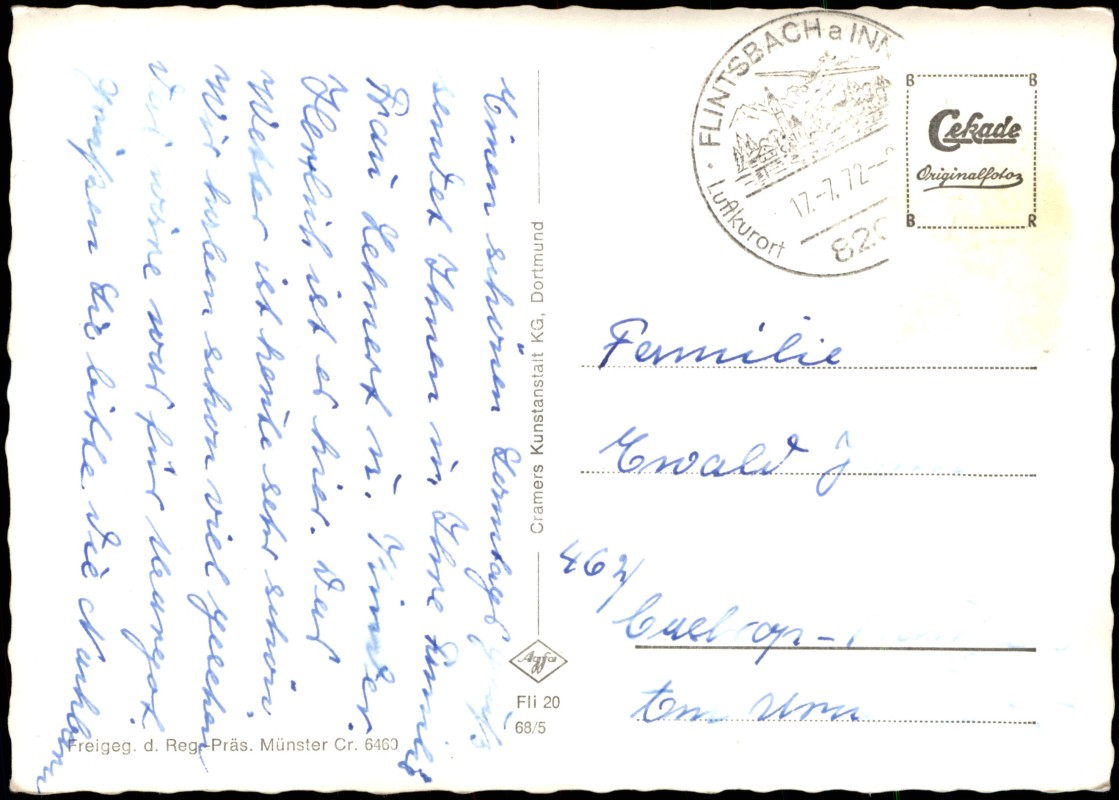 Einen schönen Sonntagsgruß
sendet Ihnen u. Ihre Familie
Frau Lehnert u. Kinder
Herrlich ist es hier. Das
Wetter ist heute sehr schön
Wir haben schon viel gesehen
Das wäre was für Margot.
Grüßen Sie bitte die Nachbarn
Cramers Kunstanstalt KG, Dortmund
Agfa
Fli 20
68/5
Freigeg. d. Reg.-Präs. Münster Cr. 6460
FLINTSBACH a INN
17.-7.72
820
Luftkurort
B B
Cekade
Originalfoto
B R
Familie
Ewald J
462
Castrop-
Am